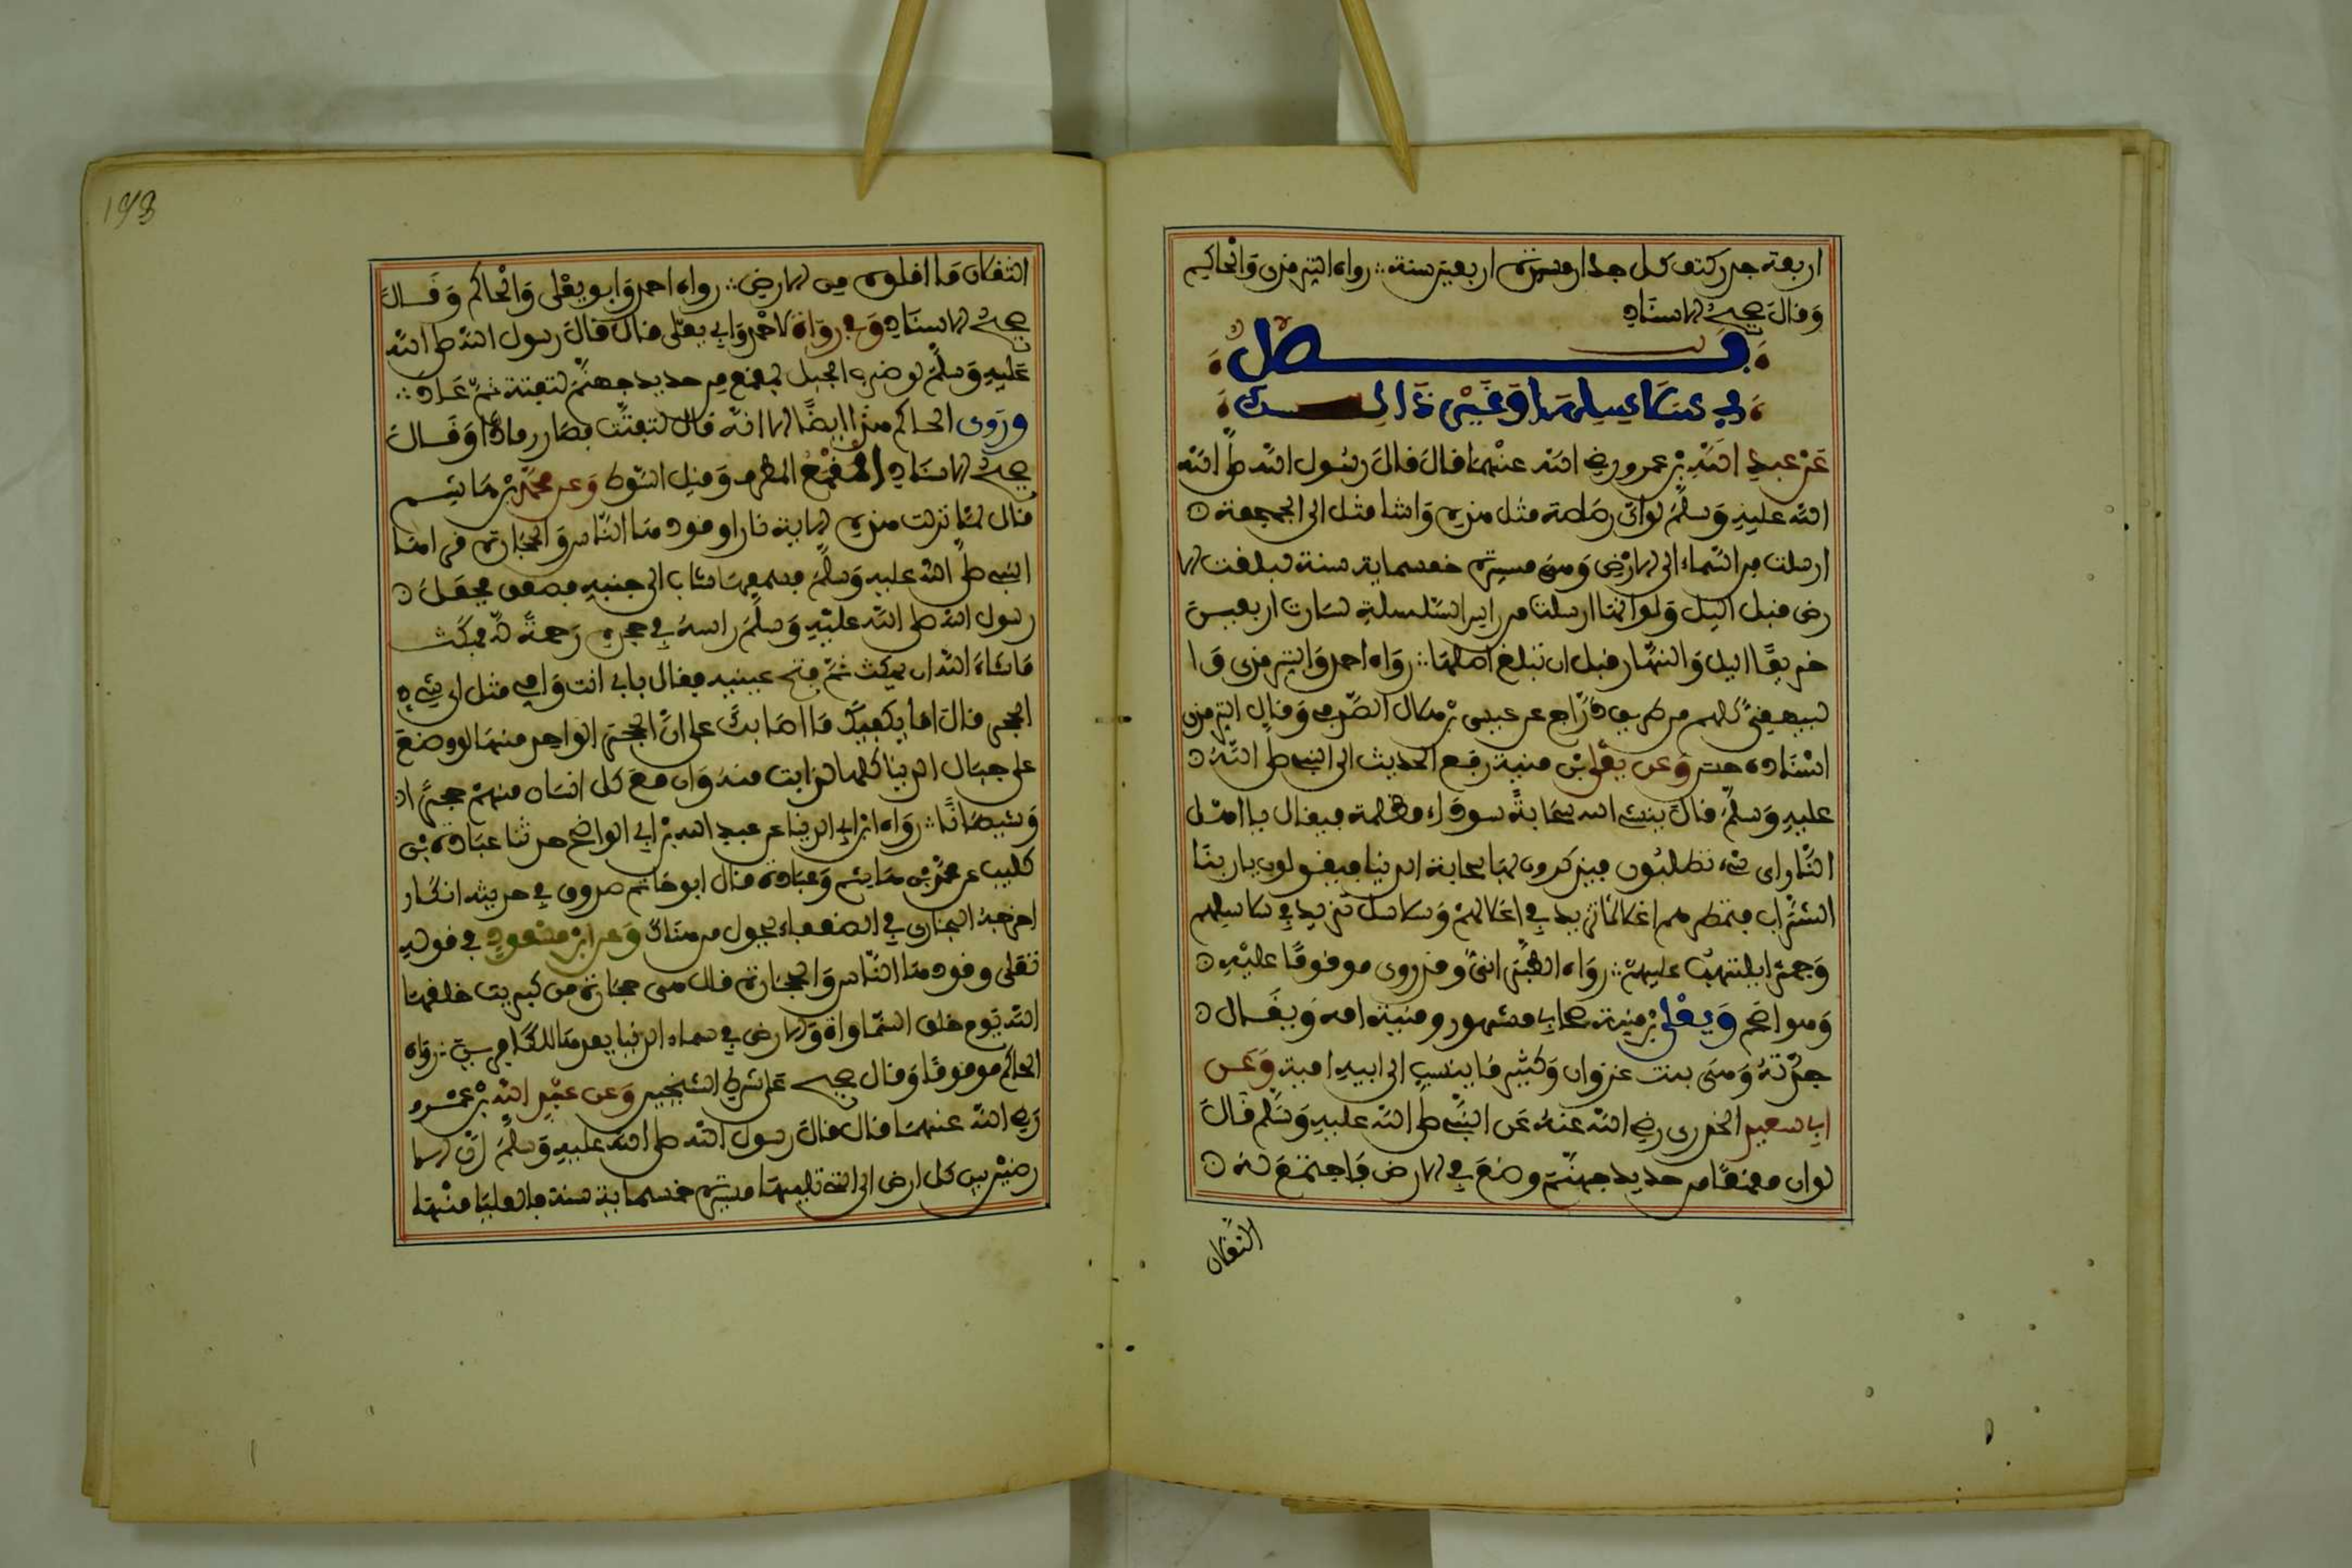 اربعة جدر كثف كل جدار مسيرة اربعين سنة ؞ رواه الترمذي والحاكم
وقال صحيح الاسناد
فصل
في سلاسلها وغير ذالك
عن عبد الله بن عمرو رضي الله عنهما قال قال رسول الله صلى الله
الله عليه وسلم لو ان رصاصة مثل هذه واشار مثل الى الجمجمة
ارسلت من السماء الى الارض وهي مسيرة خمسماية سنة لبلغت الا
رض قبل اليل ولو انها ارسلت من راس السلسلة لسارت اربعين
خريفا اليل والنهار قبل ان تبلغ اصلها ؞ رواه احمد والترمذي وا
لبيهقي كلهم من طريق دراج عن عيسى بن هلال الصدفي وقال الترمذي
اسناده حسن وعن يعلى بن منية رفع الحديث الى النبي صلى الله
عليه وسلم قال ينشئ الله سحابة سوداء مظلمة فيقال يا اهل
النار اي شيء تطلبون فيذكرون بها سحابة الدنيا فيقولون يا ربنا
الشراب فتمطرهم اغلالا تزيد في اغلالهم وسلاسل تزيد في سلاسلهم
وجمرا يلتهب عليهم ؞ رواه الطبراني وقد روي موقوفا عليه
وهو اصح ويعلى بن منية صحابي مشهور ومنية امه ويقال
جدته وهي بنت غزوان وكثير ما ينسب الى ابيه امية وعن
ابي سعيد الخدري رضي الله عنه عن النبي صلى الله عليه وسلم قال
لو ان مقمعا من حديد جهنم وضع في الارض فاجتمع له
الثقلان
193
الثقلان ما اقلوه من الارض ؞ رواه احمد وابو يعلى والحاكم وقال
صحيح الاسناد وفي رواية لاحمد وابي يعلى قال قال رسول الله صلى الله
عليه وسلم لو ضرب الجبل بمقمع من حديد جهنم لتفتت ثم عاد ؞
وروى الحاكم هذا ايضا الا انه قال لتفتت فصار رمادا وقال
صحيح الاسناد المقمع المطرق وقيل السوط وعن محمد بن هاشم
قال لما نزلت هذه الاية نارا وقودها الناس والحجارة قراها
النبي صلى الله عليه وسلم فسمعها شاب الى جنبه فصعق فجعل
رسول الله صلى الله عليه وسلم راسه في حجره رحمة له فمكث
ما شاء الله ان يمكث ثم فتح عينيه فقال بابي انت وامي مثل اي شيء
الحجر قال اما يكفيك ما اصابك على ان الحجر الواحد منها لو وضع
على جبال الدنيا كلها لذابت منه وان مع كل انسان منهم حجرا
وشيطانا ؞ رواه ابن ابي الدنيا عن عبد الله بن ابي الواضح حدثنا عبادة بن
كليب عن محمد بن هاشم وعبادة قال ابو حاتم صدوق في حديثه انكار
اخرجه البخاري في الضعفاء يحول من هناك وعن ابن مسعود في قوله
تعلى وقودها الناس والحجارة قال هي حجارة من كبريت خلقها
الله يوم خلق السماوات والارض في سماء الدنيا يعدها للكافرين ؞ رواه
الحاكم موقوفا وقال صحيح على شرط الشيخين وعن عبد الله بن عمرو
رضي الله عنهما قال قال رسول الله صلى الله عليه وسلم ان الا
رضين بين كل ارض الى التي تليها مسيرة خمسماية سنة فالعليا منها